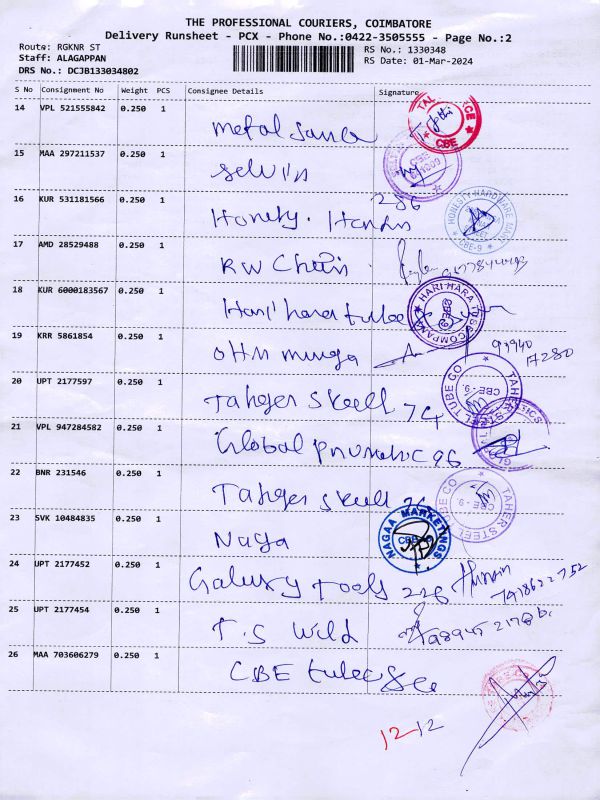 THE PROFESSIONAL COURIERS, COIMBATORE
Delivery Runsheet - PCX - Phone No.:0422-3505555 - Page No.:2
Route: RGKNR ST
RS No.: 1330348
Staff: ALAGAPPAN
RS Date: 01-Mar-2024
DRS No.: DCJB133034802
S No Consignment No Weight PCS Consignee Details Signature
14 VPL 521555842 0.250 1
CBE
15 MAA 297211537 0.250 1 selvin
16 KUR 531181566 0.250 1 Honesty. 286
HONESTY HARDWARE MART CBE-9
17 AMD 28529488 0.250 1 RW Chain.
18 KUR 6000183567 0.250 1 Hari hara tube
HARI HARA TUBE COMPANY CBE-9
19 KRR 5861854 0.250 1
93940
20 UPT 2177597 0.250 1 Taher Steell 74
TAHER STEEL TUBE CO CBE-9.
21 VPL 947284582 0.250 1 Global pnumatic 96
22 BNR 231546 0.250 1 Taher Steell
TAHER STEEL TUBE CO CBE-9
23 SVK 10484835 0.250 1 Naga
NAGAA MARKETINGS
24 UPT 2177452 0.250 1 Galaxy tools 226
25 UPT 2177454 0.250 1 T.S Wild
26 MAA 703606279 0.250 1 CBE tube
12-12